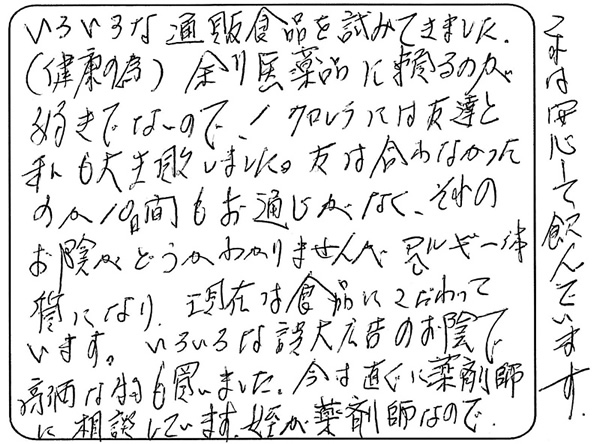 いろいろな通販食品を試みてきました。
(健康の為) 余り医薬品に頼るのが
好きでないので、! クロレラには友達と
私も大失敗しました。友は合わなかった
のか10日間もお通じがなく、それの
お陰かどうかわかりませんが アレルギー体
質になり、現在は食品にこだわって
います。いろいろな誇大広告のお陰で
高価な物も買いました。今は直ぐに薬剤師
に相談しています。姪が薬剤師なので。
これは安心して飲んでいます。